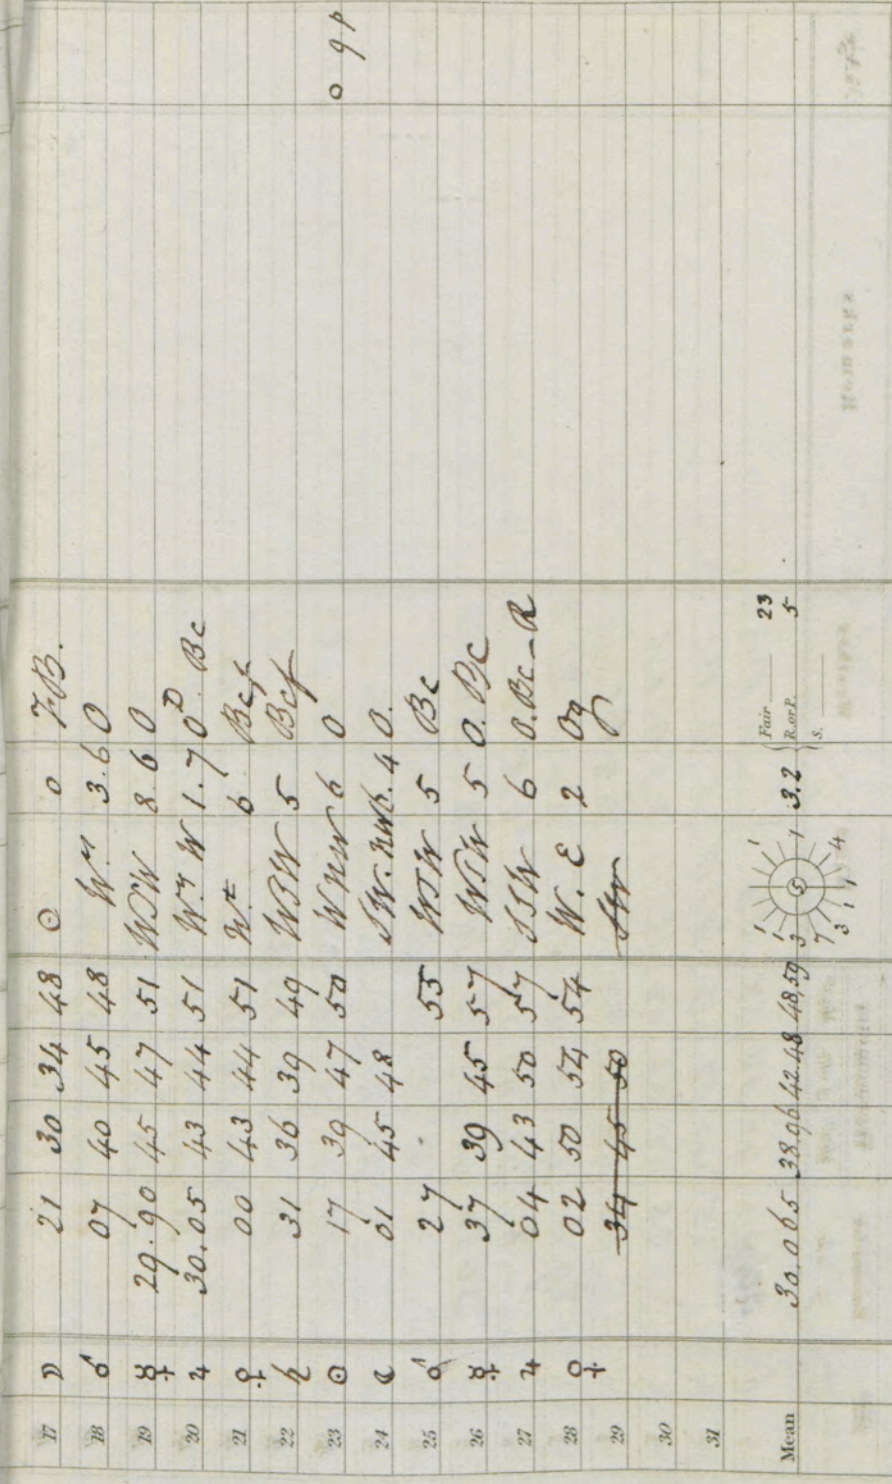 17 ☽ 21 30 34 48 ⊙ 0 F.B.
18 ♂ 07 40 45 48 Wy 3.6 O
19 ☿ 29.90 45 47 51 WSW 8.6 O
20 ♃ 30.05 43 44 51 Wy W 1.7 OD. Bc
21 ♀ 00 43 44 51 6 Bcf
22 ♄ 31 36 39 49 WSW 5 Bcf
23 ⊙ 17 39 47 50 WNW 6 O o g p
24 ☾ 01 45 48 SW. NW 6.4 O.
25 ♂ 27 . 55 WSW 5 Bc
26 ☿ 37 39 45 57 WSW 5 O. Bc
27 ♃ 04 43 50 57 SSW 6 O. Bc - R
28 ♀ 02 50 54 54 W. E 2 Og
29 34 45 50 SW
30
31
Mean 30.065 38.96 42.48 48.59 1 1 1 3 7 3 1 1 4 1 5 3.2 Fair 23
R. or P. 5
S.
Remarks